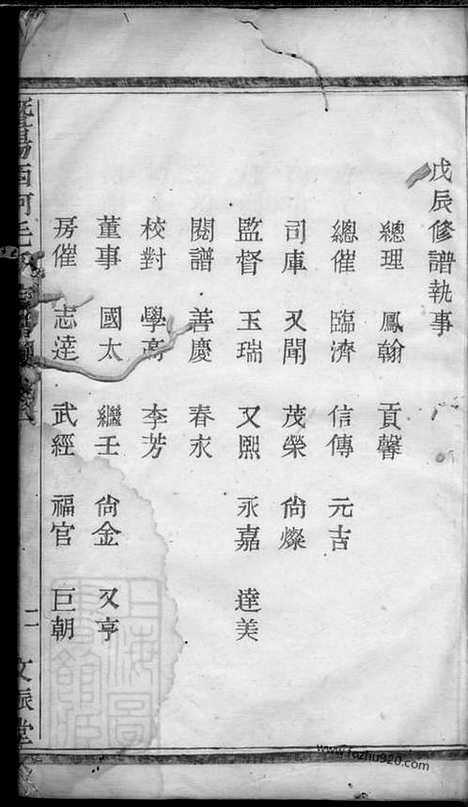 戊辰修譜執事
總理 鳳翰 貢馨
總催 臨濟 信傳 元吉
司庫 又聞 茂榮 尙燦
監督 玉瑞 又熙 永嘉 達美
閱譜 善慶 春永
校對 學高 李芳
董事 國太 繼壬 尙金 又亨
房催 志達 武經 福官 巨朝
二
www.fozhu920.com